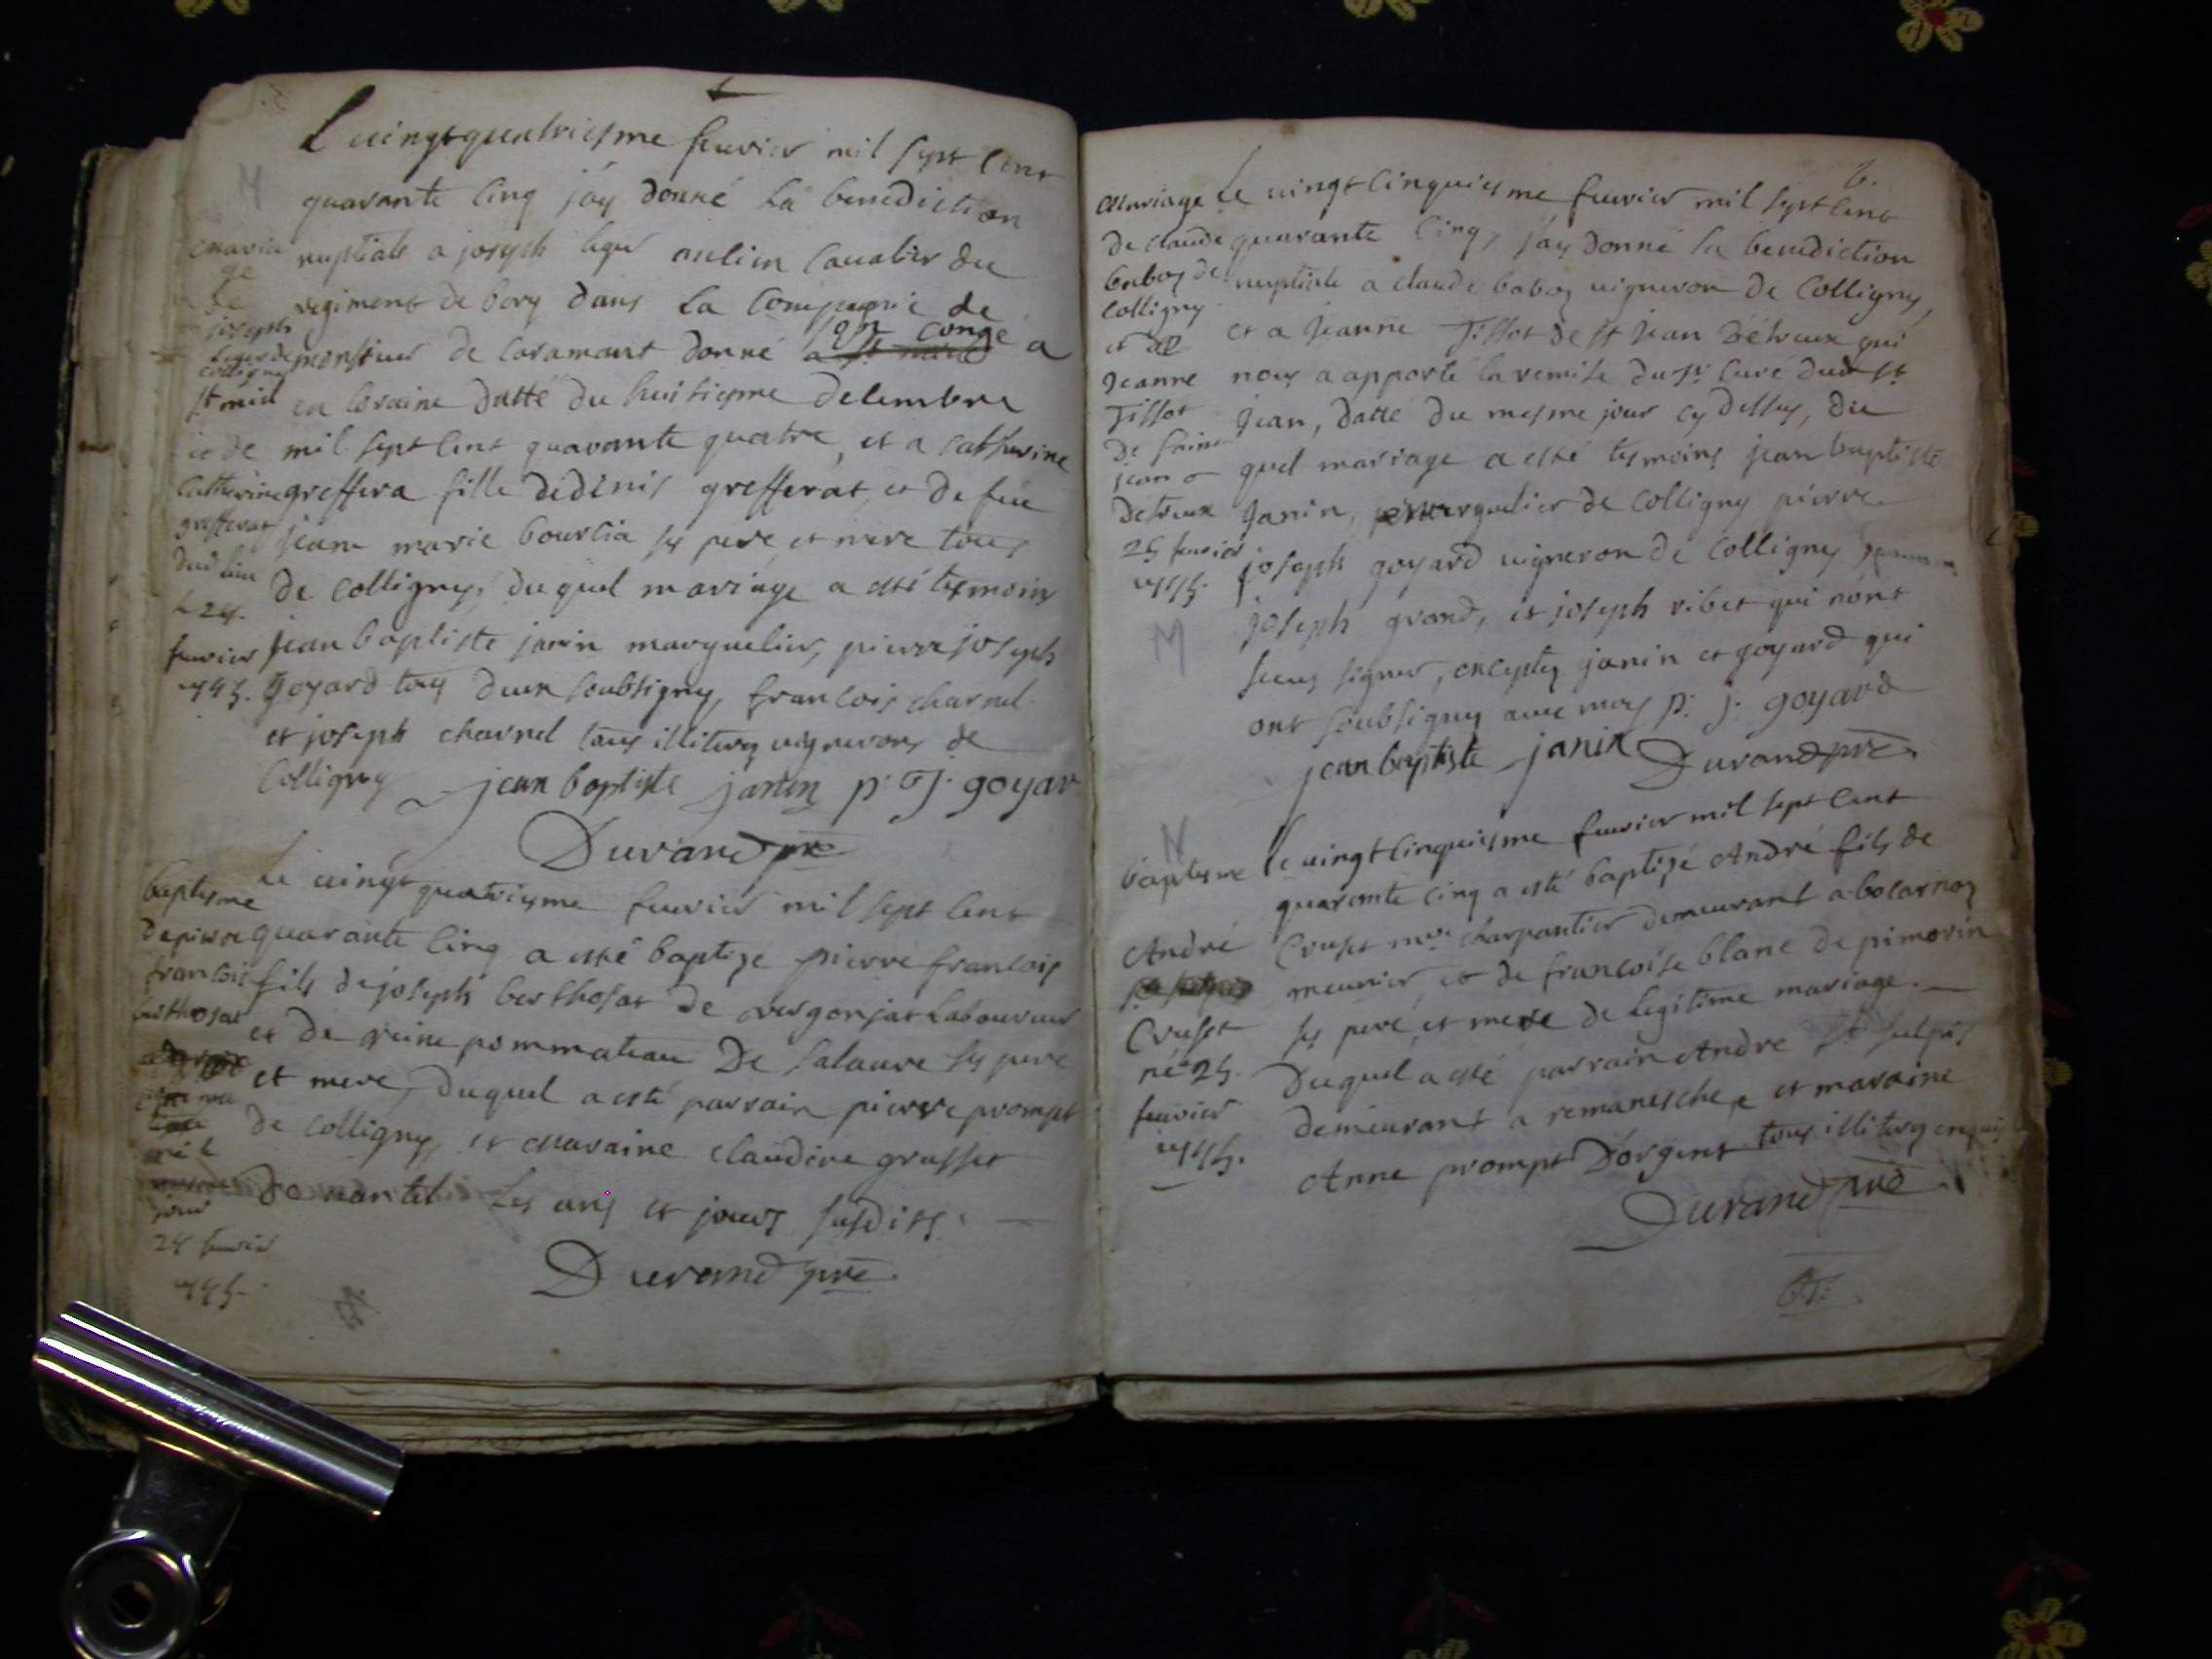 L vingtquatriesme fevrier mil sept cent
quarante cinq j'ay donné la benediction
nuptiale a joseph ancien cavalier du
regiment de dans la compagnie de
son congé
monsieur de caramant donné a a
en loraine datté du huitiesme decembre
mil sept cent quarante quatre, et a catherine
greffera fille de denis grefferat, et de feüe
jeane marie bourcia ses pere et mere tous
de colligny, du quel mariage a esté tesmoins
jean baptiste janin marguelier, pierre joseph
goyard tous deux soubsignes, francois charnel
et joseph charnel tous illiteres vignerons de
Colligny jean baptiste janin p. j. goyar
Durand pre
maria
ge
de
joseph
leger de
colligny
st miel
et de
catherine
grefferat
dud lieu
le 24.
fevrier
1745.
Le vingt quatriesme fevrier mil sept cent
quarante cinq a esté baptizé pierre francois
fils de joseph berthosat de vergonjat laboureur
et de reine pommateau de salavre ses pere
et mere, duquel a esté parrain pierre prompt
de colligny, et maraine claudine grusset
de nantel les ans et jours susdits.
Durand pre
baptesme
de pierre
francois
berthosat
24 fevrier
1745.
6.
Le vingt cinquiesme fevrier mil sept cent
quarante cinq, j'ay donné la benediction
nuptiale a claude baboz vigneron de Colligny,
et a jeanne Tissot de st jean d'étreux qui
nous a apporté la remise du sr curé dud st
jean, datté du mesme jour cy dessus, du
quel mariage a esté tesmoins jean baptiste
janin, marguelier de colligny pierre
joseph goyard vigneron de colligny
joseph grand, et joseph ribet qui n'ont
sceus signer, exceptez janin et goyard qui
ont soubsignez avec moy p. j. goyard
jean baptiste janin Durand pre
Mariage
de claude
baboz de
colligny
et de
jeanne
Tissot
de saint
jean
d'etreux
25 fevrier
1745.
M
N
le vingt cinquiesme fevrier mil sept cent
quarante cinq a esté baptizé André fils de
Cruset mre charpantier demeurant a bocarnoz
meunier, et de francoise blanc de pimorin
ses pere, et mere de legitime mariage.
Duquel a esté parrain André st sulpis
demeurant a remanesche, et maraine
Anne prompt d'orgent tous illiteres enquis
Durand pre
baptesme
André
Cruset
né 25
fevrier
1745.